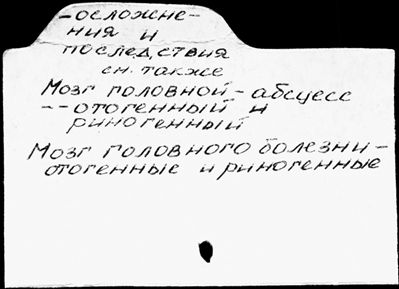 -осложне-
ния и
последствия
см. также
Мозг головной - абсцесс
-- отогенный и
риногенный
Мозг головного болезни -
отогенные и риногенные